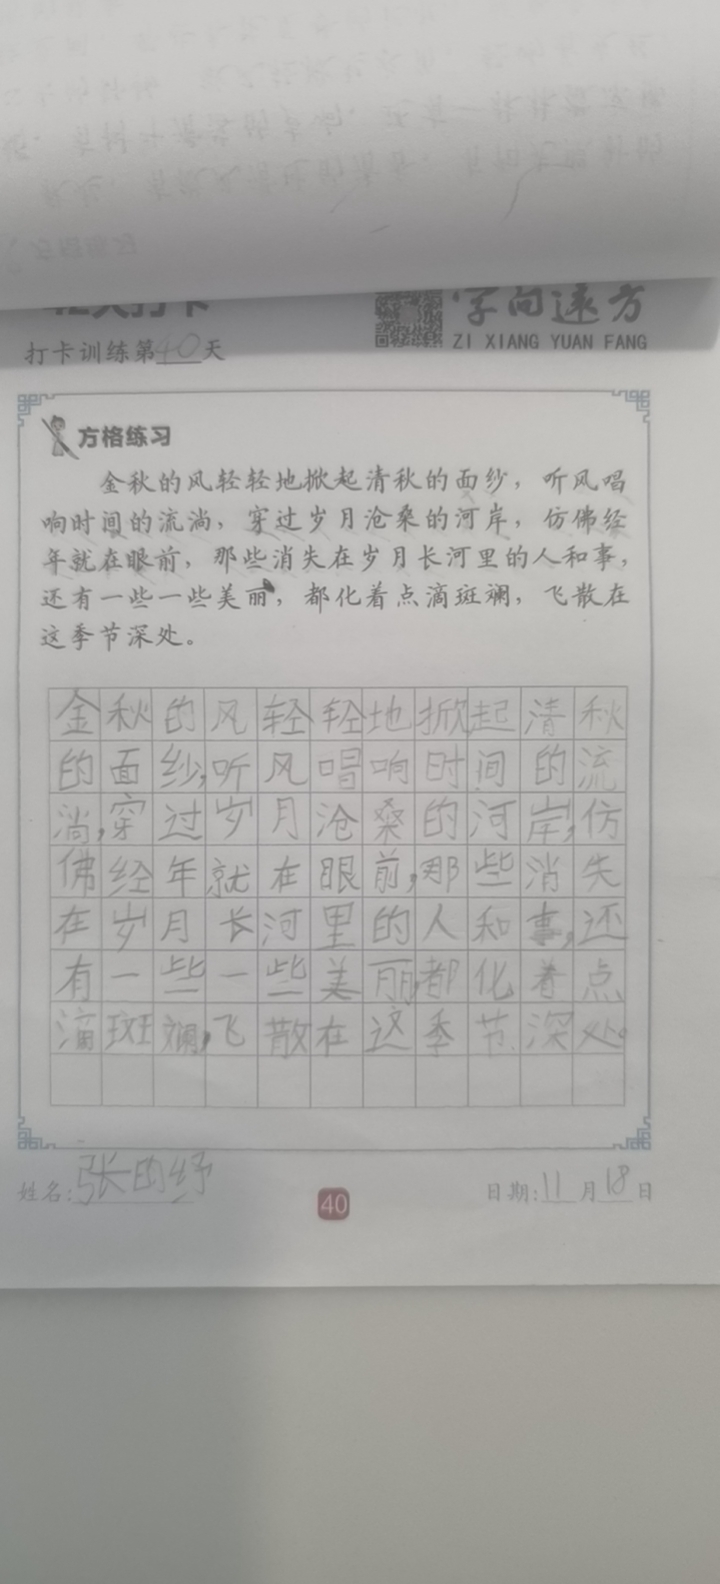 打卡训练第40天
字向遠方
ZI XIANG YUAN FANG
方格练习
金秋的风轻轻地掀起清秋的面纱，听风唱
响时间的流淌，穿过岁月沧桑的河岸，仿佛经
年就在眼前，那些消失在岁月长河里的人和事，
还有一些一些美丽，都化着点滴斑斓，飞散在
这季节深处。
金秋的风轻轻地掀起清秋
的面纱，听风唱响时间的流
淌，穿过岁月沧桑的河岸，仿
佛经年就在眼前，那些消失
在岁月长河里的人和事，还
有一些一些美丽，都化着点
滴斑斓，飞散在这季节深处。
姓名：张
40
日期：11月18日